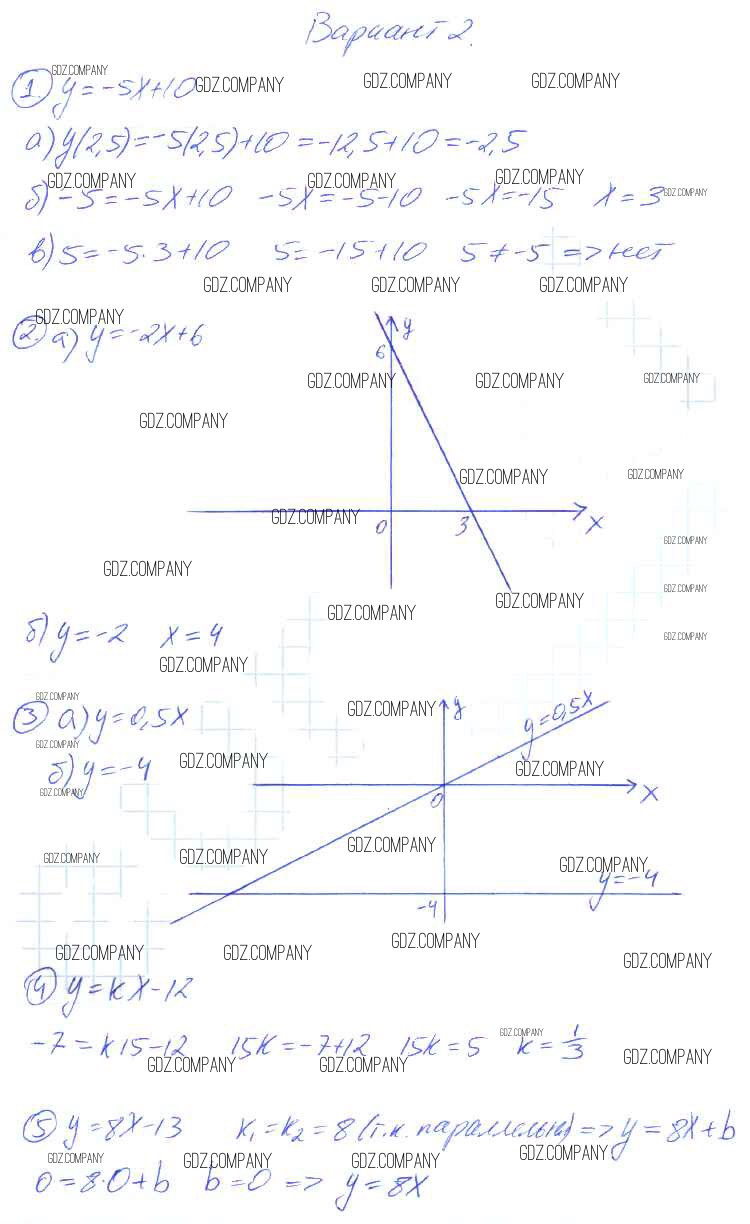 Вариант 2.
GDZ.COMPANY
① y = -5x+10 GDZ.COMPANY GDZ.COMPANY GDZ.COMPANY
а) y(2,5) = -5(2,5)+10 = -12,5+10 = -2,5
GDZ.COMPANY GDZ.COMPANY GDZ.COMPANY
б) -5 = -5x+10 -5x = -5-10 -5x = -15 x = 3 GDZ.COMPANY
в) 5 = -5·3+10 5 = -15+10 5 ≠ -5 => нет
GDZ.COMPANY GDZ.COMPANY GDZ.COMPANY
GDZ.COMPANY
② а) y = -2x+6
y
6
GDZ.COMPANY GDZ.COMPANY GDZ.COMPANY
GDZ.COMPANY
GDZ.COMPANY GDZ.COMPANY
GDZ.COMPANY
0 3 x
GDZ.COMPANY
GDZ.COMPANY
GDZ.COMPANY
GDZ.COMPANY GDZ.COMPANY
б) y = -2 x = 4
GDZ.COMPANY
GDZ.COMPANY
GDZ.COMPANY
③ а) y = 0,5x
GDZ.COMPANY y y = 0,5x
GDZ.COMPANY
б) y = -4 GDZ.COMPANY GDZ.COMPANY
GDZ.COMPANY
0 x
GDZ.COMPANY
GDZ.COMPANY GDZ.COMPANY GDZ.COMPANY
y = -4
-4
GDZ.COMPANY GDZ.COMPANY GDZ.COMPANY GDZ.COMPANY
④ y = kx-12
-7 = k15-12 15k = -7+12 15k = 5 k = 1/3
GDZ.COMPANY
GDZ.COMPANY GDZ.COMPANY GDZ.COMPANY
⑤ y = 8x-13 k₁ = k₂ = 8 (т.к. параллельн) => y = 8x+b
GDZ.COMPANY GDZ.COMPANY GDZ.COMPANY GDZ.COMPANY
0 = 8·0+b b = 0 => y = 8x